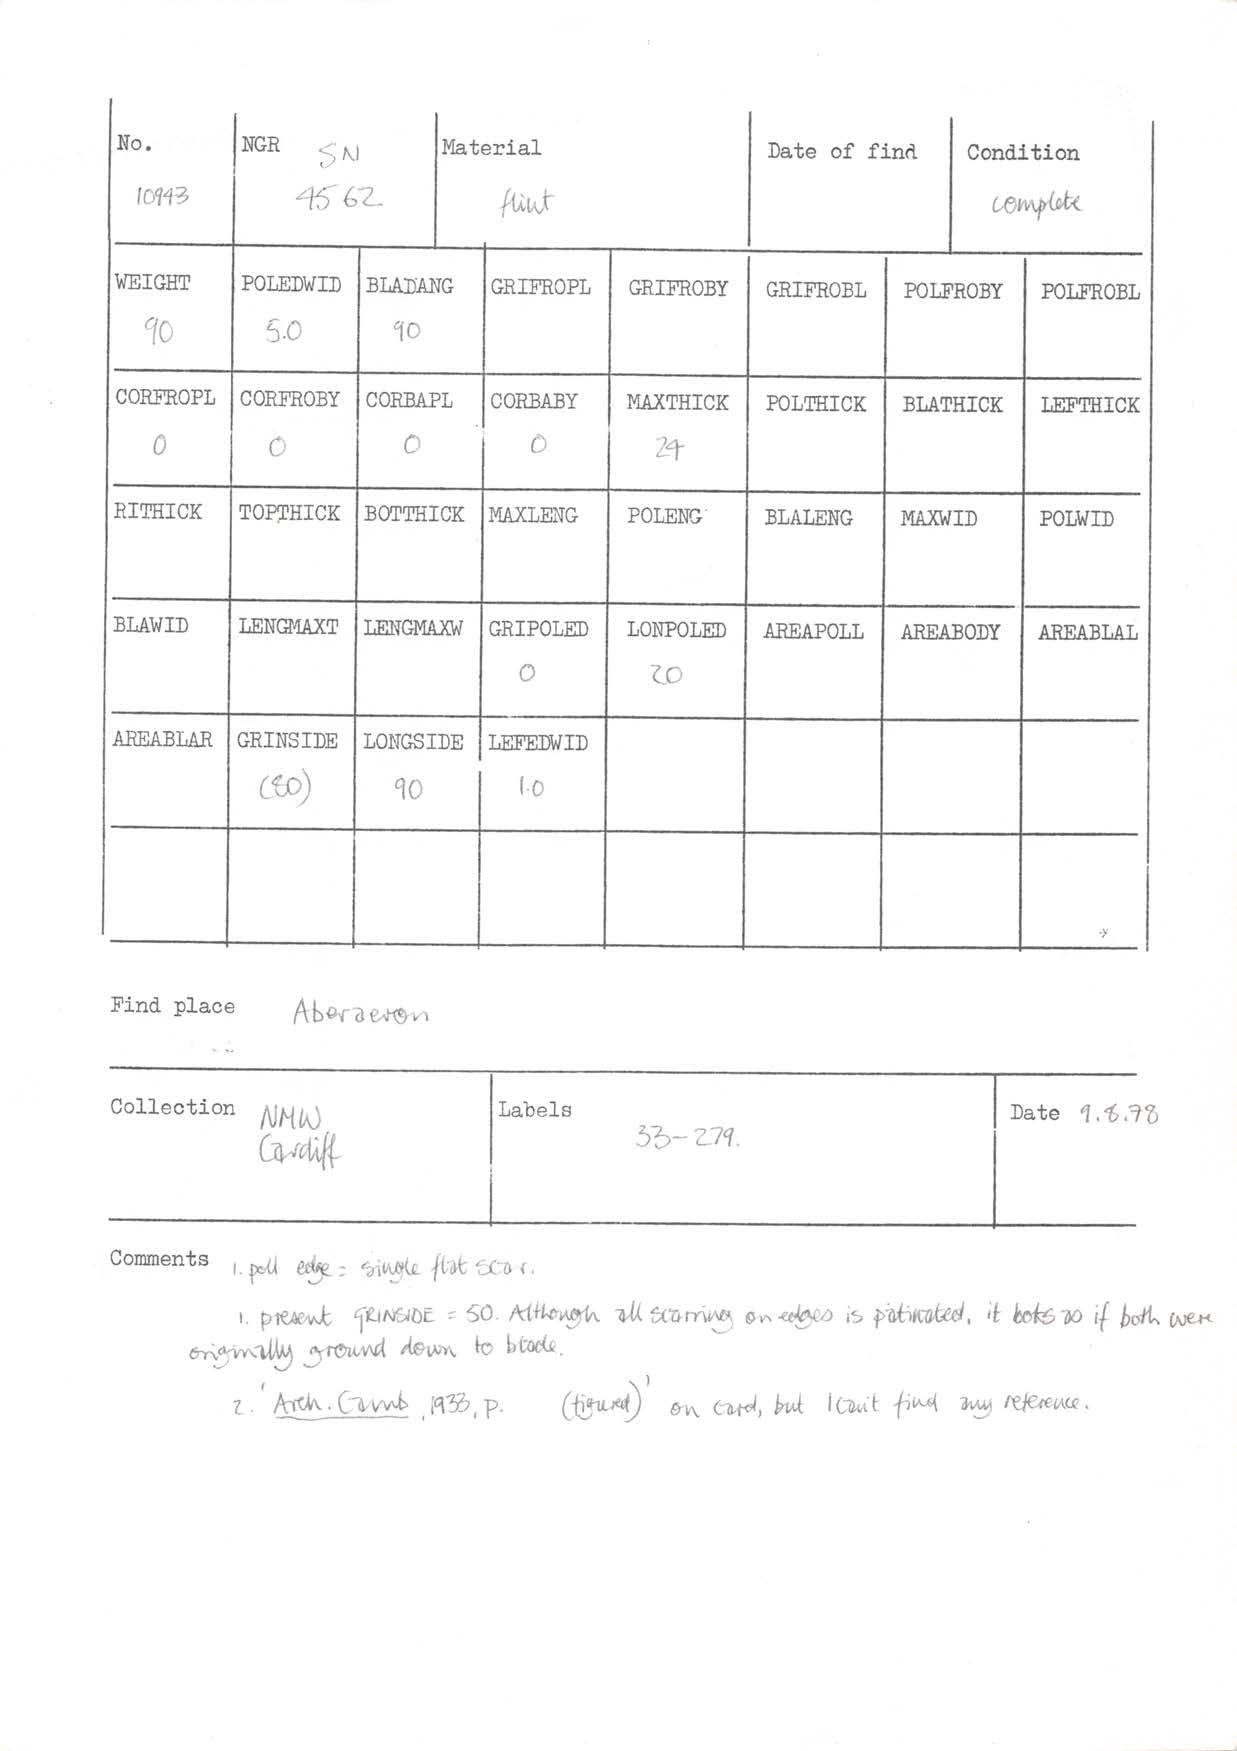 No. NGR SN Material Date of find Condition
10943 4562 flint complete
WEIGHT POLEDWID BLADANG GRIFROPL GRIFROBY GRIFROBL POLFROBY POLFROBL
90 5.0 90
CORFROPL CORFROBY CORBAPL CORBABY MAXTHICK POLTHICK BLATHICK LEFTHICK
0 0 0 0 24
RITHICK TOPTHICK BOTTHICK MAXLENG POLENG BLALENG MAXWID POLWID
BLAWID LENGMAXT LENGMAXW GRIPOLED LONPOLED AREAPOLL AREABODY AREABLAL
0 20
AREABLAR GRINSIDE LONGSIDE LEFEDWID
(80) 90 1.0
Find place Aberaeron
Collection NMW Labels Date 9.8.78
Cardiff 33-279.
Comments 1. poll edge = single flat scar.
1. present GRINSIDE = 50. Although all scarring on edges is patinated, it looks as if both were
originally ground down to blade.
2. 'Arch. Camb, 1933, p. (figured)' on card, but I can't find any reference.